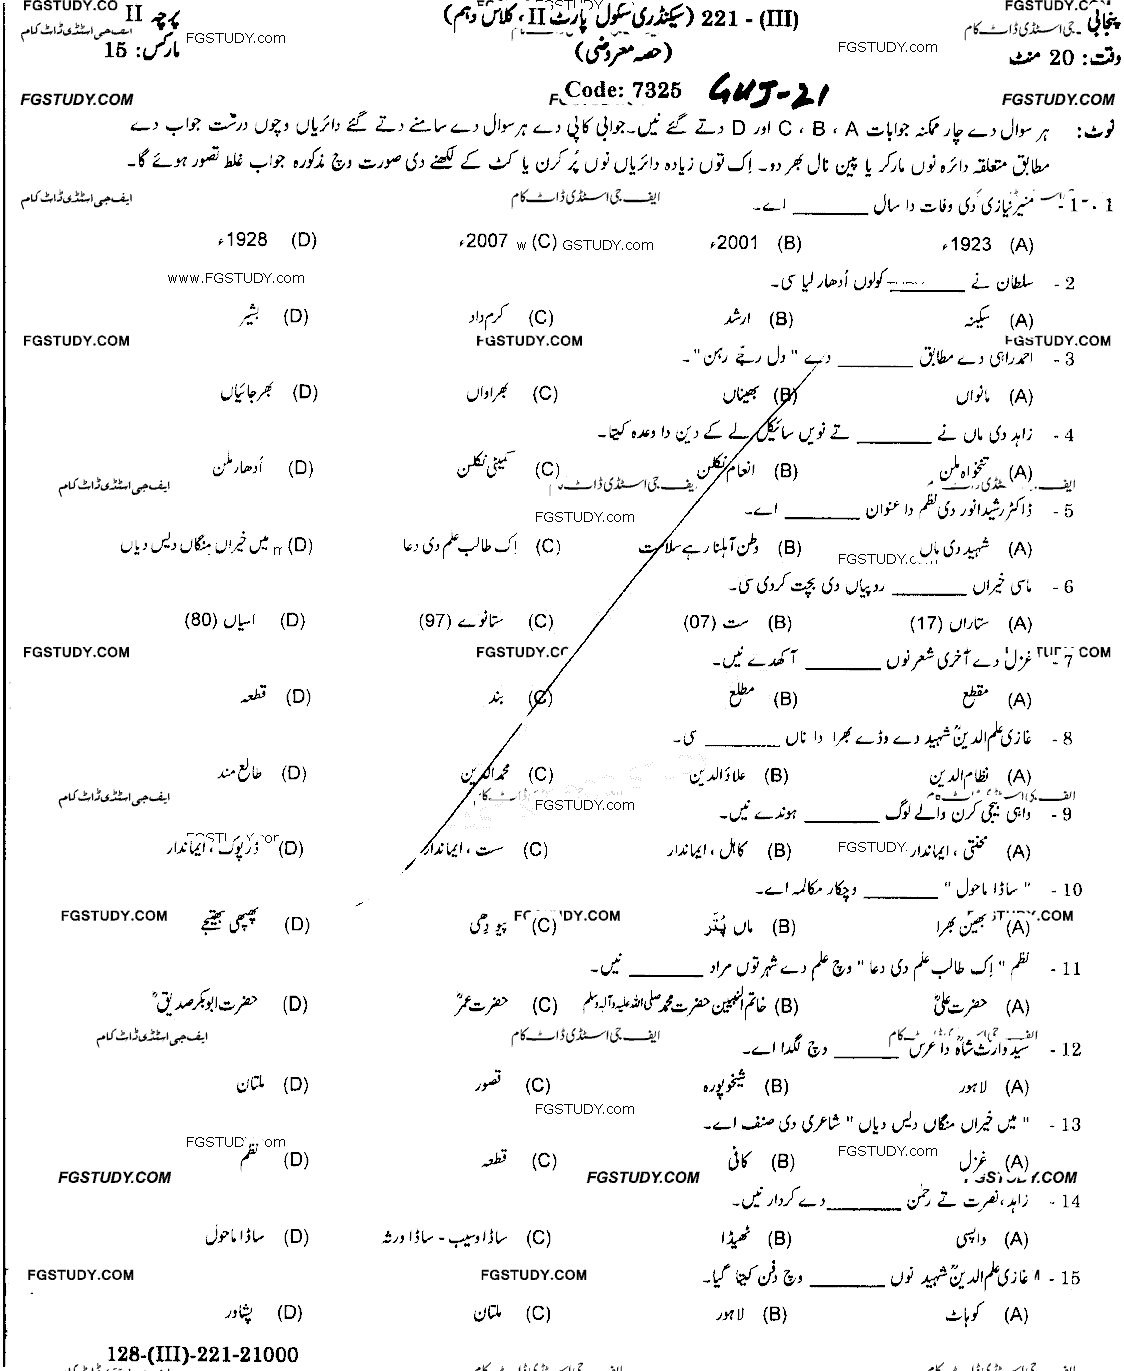 FGSTUDY.CO FGSTUDY.COM FGSTUDY.C
پنجابی (III) - 221 (سیکنڈری سکول پارٹ II، کلاس دہم) پرچہ II
ایف جی اسٹڈی ڈاٹ کام FGSTUDY.com
وقت: 20 منٹ (حصہ معروضی) مارکس: 15
FGSTUDY.com
FGSTUDY.COM Code: 7325 GUJ-21 FGSTUDY.COM
نوٹ: ہر سوال دے چار ممکنہ جوابات A ، B ، C اور D دتے گئے نیں۔ جوابی کاپی دے ہر سوال دے سامنے دتے گئے دائریاں وچوں درست جواب دے
مطابق متعلقہ دائرہ نوں مارکر یا پین نال بھر دو۔ اِک توں زیادہ دائریاں نوں پُر کرن یا کٹ کے لکھنے دی صورت وچ مذکورہ جواب غلط تصور ہوئے گا۔
1-1 منیر نیازی دی وفات دا سال ________ اے۔
ایف جی اسٹڈی ڈاٹ کام ایف جی اسٹڈی ڈاٹ کام
(A) 1923ء (B) 2001ء (C) 2007ء (D) 1928ء
GSTUDY.com
www.FGSTUDY.com
2 - سلطان نے ________ کولوں اُدھار لیا سی۔
(A) سکینہ (B) ارشد (C) کرم داد (D) بشیر
FGSTUDY.COM FGSTUDY.COM FGSTUDY.COM
3 - احمد راہی دے مطابق ________ دے " دل رجّے رہن"۔
(A) مانواں (B) بھیناں (C) بھراواں (D) بھرجائیاں
4 - زاہد دی ماں نے ________ تے نویں سائیکل لے کے دین دا وعدہ کیتا۔
(A) تنخواہ ملن (B) انعام نکلن (C) کمیٹی نکلن (D) اُدھار ملن
ایف جی اسٹڈی ڈاٹ کام
5 - ڈاکٹر رشید انور دی نظم دا عنوان ________ اے۔
FGSTUDY.com
(A) شہید دی ماں (B) وطن آہلنا رہے سلامت (C) اِک طالب علم دی دعا (D) میں خیراں منگاں دیس دیاں
6 - ماسی خیراں ________ روپیاں دی بچت کردی سی۔
(A) ستاراں (17) (B) ست (07) (C) ستانوے (97) (D) اسیاں (80)
FGSTUDY.COM FGSTUDY.CO
7 - غزل دے آخری شعر نوں ________ آکھدے نیں۔
(A) مقطع (B) مطلع (C) بند (D) قطعہ
8 - غازی علم الدینؒ شہید دے وڈے بھرا دا ناں ________ سی۔
(A) نظام الدین (B) علاؤالدین (C) محمد الدین (D) طالع مند
ایف جی اسٹڈی ڈاٹ کام FGSTUDY.com
9 - واہی بیجی کرن والے لوگ ________ ہوندے نیں۔
(A) محنتی ، ایماندار (B) کاہل ، ایماندار (C) ست ، ایماندار (D) ڈرپوک ، ایماندار
FGSTUDY.
10 - " ساڈا ماحول " ________ وچکار مکالمہ اے۔
FGSTUDY.COM
(A) بھین بھرا (B) ماں پُتّر (C) پیو دھی (D) پھپھی بھتیجے
11 - نظم " اِک طالب علم دی دعا " وچ علم دے شہر توں مراد ________ نیں۔
(A) حضرت علیؓ (B) خاتم النبیین حضرت محمد صلی اللہ علیہ وآلہ وسلم (C) حضرت عمرؓ (D) حضرت ابوبکر صدیقؓ
ایف جی اسٹڈی ڈاٹ کام ایف جی اسٹڈی ڈاٹ کام ایف جی اسٹڈی ڈاٹ کام
12 - سید وارث شاہؒ دا عرس ________ وچ لگدا اے۔
(A) لاہور (B) شیخوپورہ (C) قصور (D) ملتان
FGSTUDY.com
13 - " میں خیراں منگاں دیس دیاں " شاعری دی صنف اے۔
FGSTUDY.com
(A) غزل (B) کافی (C) قطعہ (D) نظم
FGSTUDY.COM FGSTUDY.COM
14 - زاہد ، نصرت تے رحمٰن ________ دے کردار نیں۔
(A) واپسی (B) ٹھیڈا (C) ساڈا وسیب - ساڈا ورثہ (D) ساڈا ماحول
FGSTUDY.COM FGSTUDY.COM
15 - غازی علم الدینؒ شہید نوں ________ وچ دفن کیتا گیا۔
(A) کوہاٹ (B) لاہور (C) ملتان (D) پشاور
128-(III)-221-21000